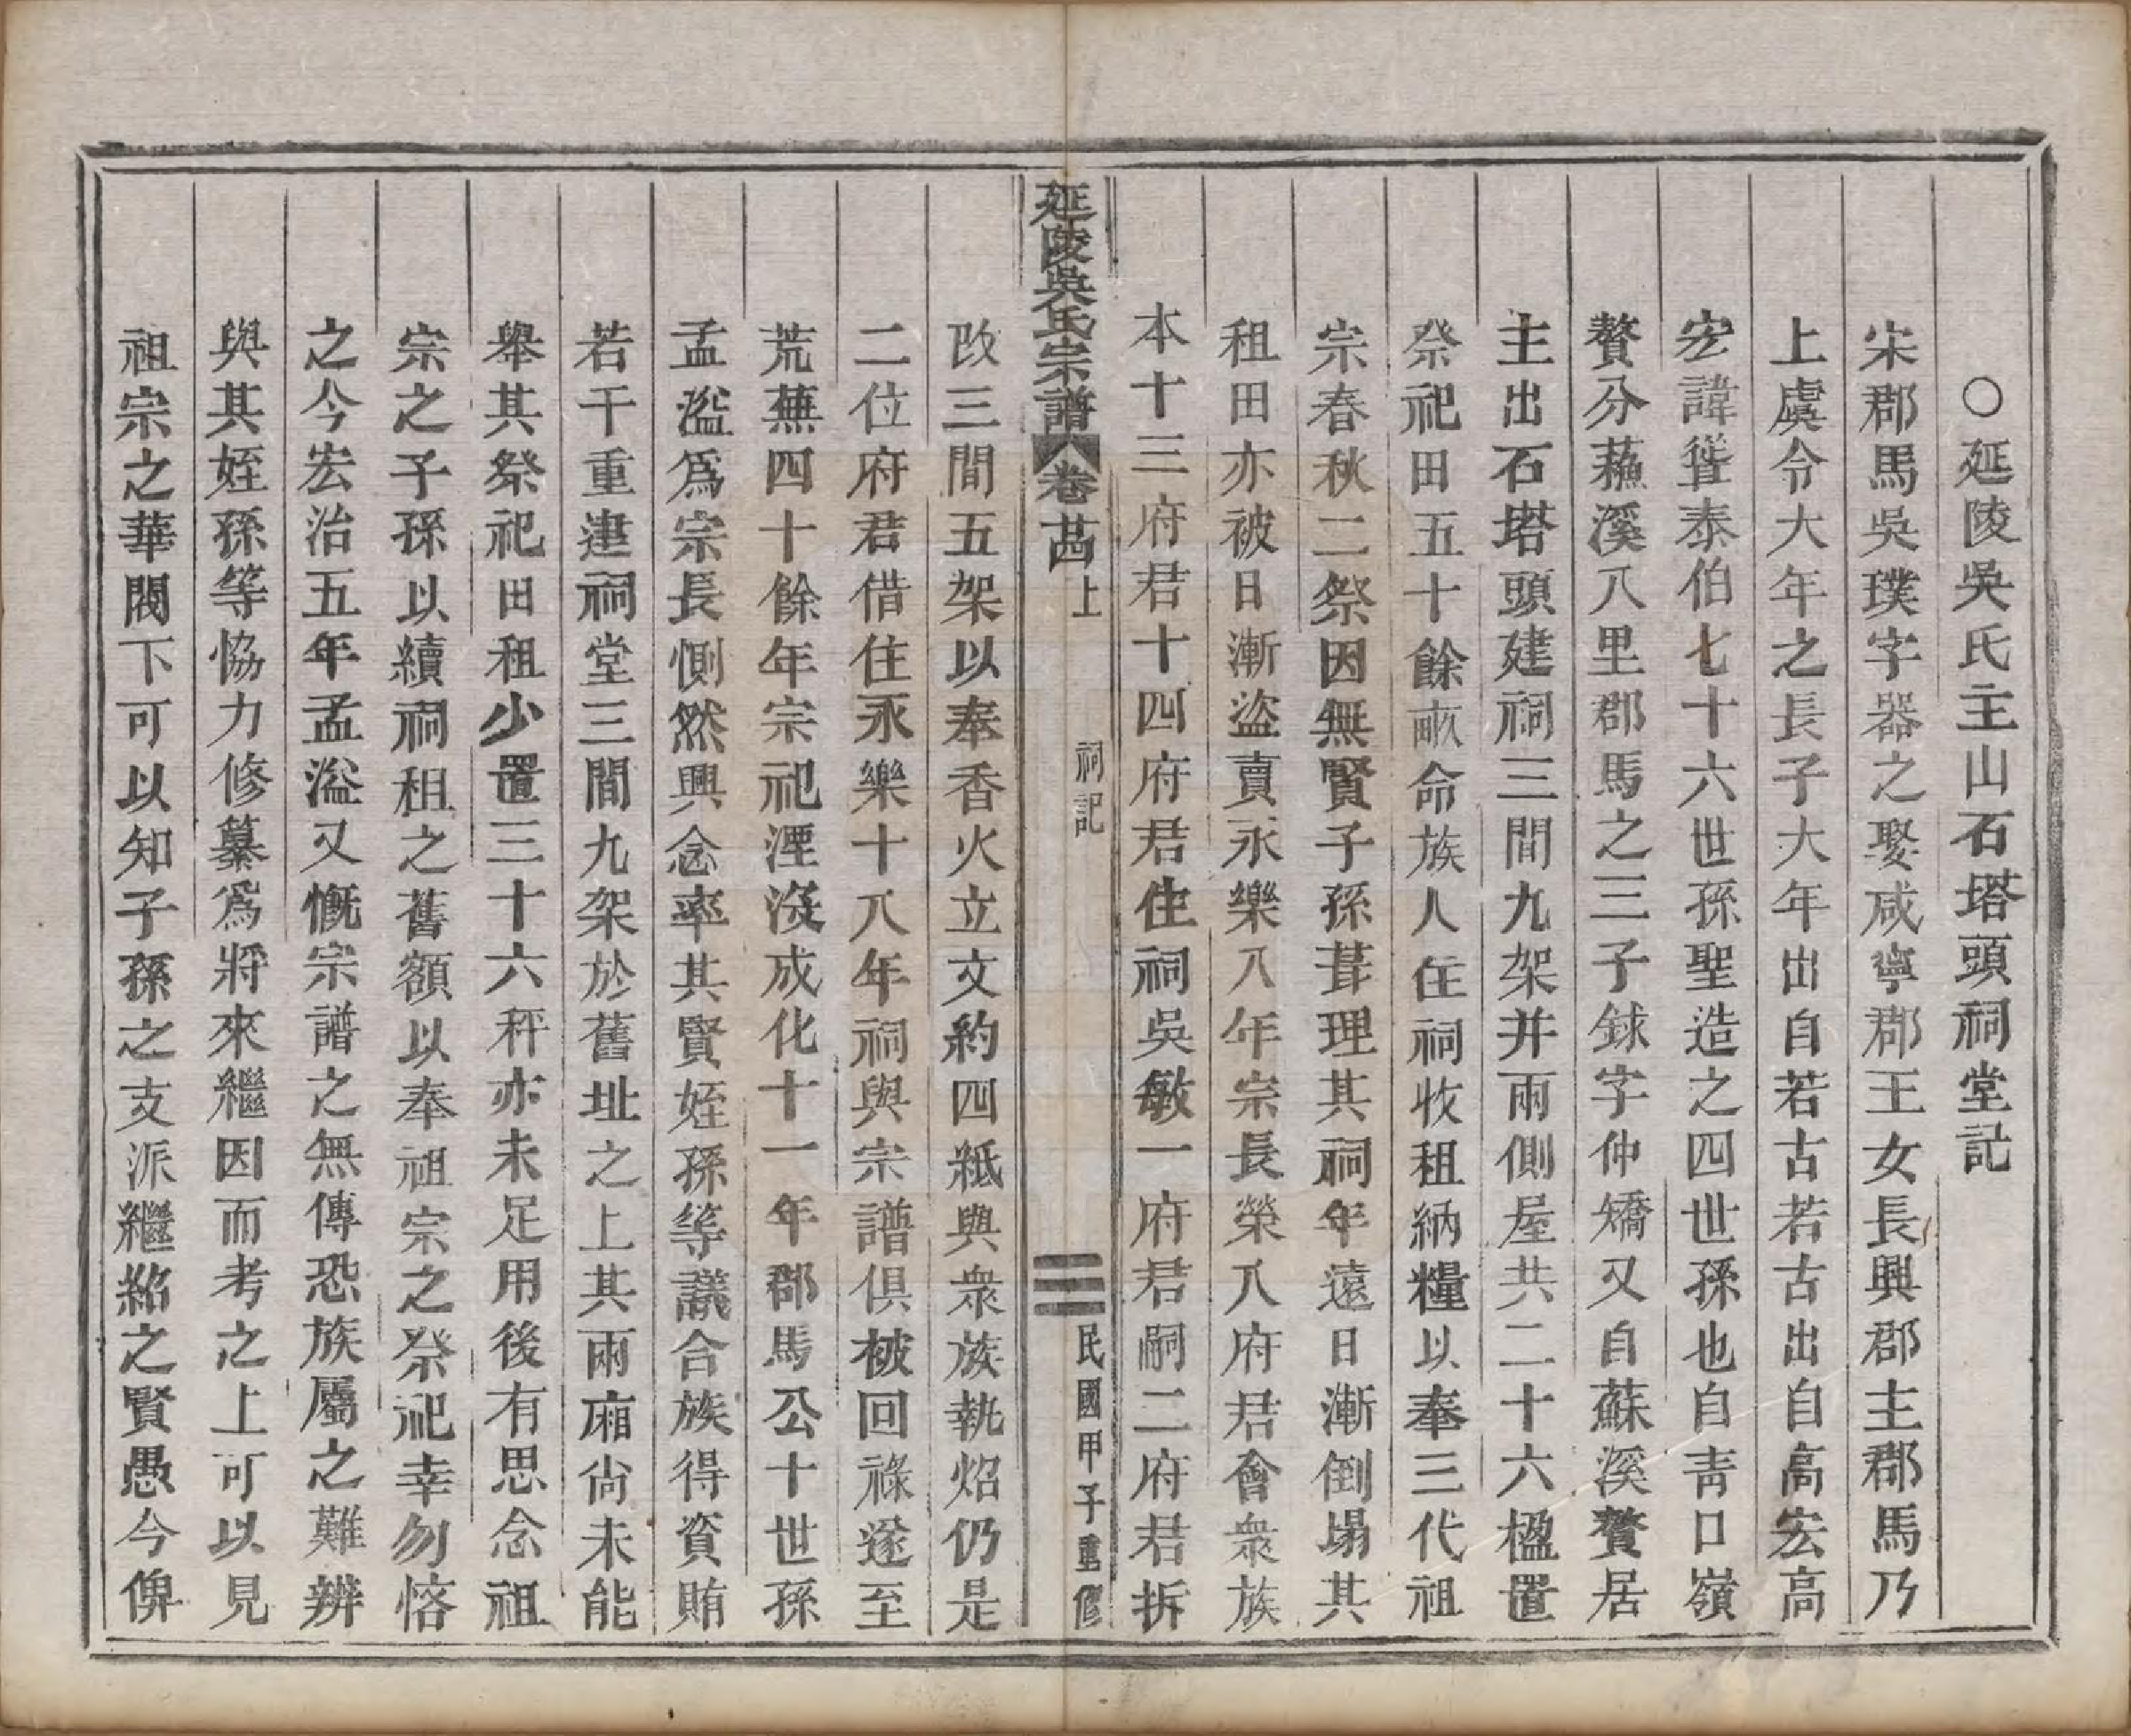 ○延陵吳氏主山石塔頭祠堂記
宋郡馬吳璞字器之娶咸寧郡王女長興郡主郡馬乃
上虞令大年之長子大年出自若古若古出自高宏高
宏諱從泰伯七十六世孫聖造之四世孫也自青口嶺
贅分蘓溪八里郡馬之三子銶字仲矯又自蘇溪贅居
主出石塔頭建祠三間九架并兩側屋共二十六楹置
祭祀田五十餘畝命族人住祠收租納糧以奉三代祖
宗春秋二祭因無賢子孫葺理其祠年遠日漸倒塌其
租田亦被日漸盜賣永樂八年宗長榮八府君會衆族
本十三府君十四府君住祠吳敏一府君嗣二府君拆
延陵吳氏宗譜
卷廿四上
祠記
三
民國甲子重修
改三間五架以奉香火立文約四紙與衆族執炤仍是
二位府君借住永樂十八年祠與宗譜俱被回祿遂至
荒蕪四十餘年宗祀湮沒成化十一年郡馬公十世孫
孟溢爲宗長惻然興念率其賢姪孫等議合族得資賄
若干重建祠堂三間九架於舊址之上其兩廂尚未能
舉其祭祀田租少置三十六秤亦未足用後有思念祖
宗之子孫以續祠租之舊額以奉祖宗之祭祀幸勿悋
之今宏治五年孟溢又慨宗譜之無傳恐族屬之難辨
與其姪孫等恊力修纂爲將來繼因而考之上可以見
祖宗之華閥下可以知子孫之支派繼紹之賢愚今俾